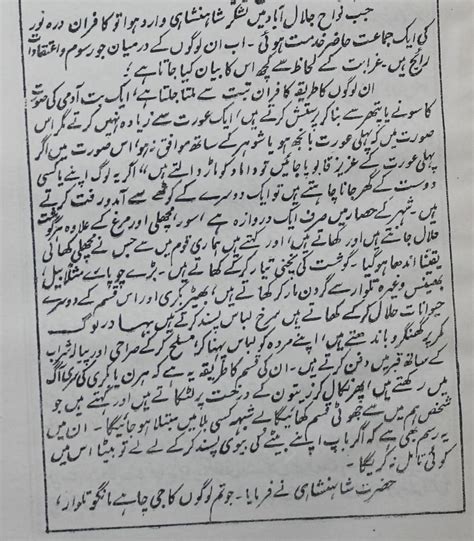 جب نواح جلال آباد میں لشکر شاہنشاہی وارد ہوا تو کافران درہ نور
کی ایک جماعت حاضر خدمت ہوئی ۔ اب ان لوگوں کے درمیان جو رسوم و اعتقادات
رائج ہیں ۔ غرابت کے لحاظ سے کچھ اس کا بیان کیا جاتا ہے ؛
ان لوگوں کا طریقہ کافران تبت سے ملتا جلتا ہے ، ایک بت آدمی کی صورت
کا سونے یا پتھر سے بنا کر پرستش کرتے ہیں ، ایک عورت سے زیادہ نہیں کرتے مگر اس
صورت میں کہ پہلی عورت بانجھ ہو یا شوہر کے ساتھ موافق نہ ہو ، اس صورت میں اگر
پہلی عورت کے عزیز قابو پا جائیں تو داماد کو مار ڈالتے ہیں ” اگر یہ لوگ اپنے یا کسی
دوست کے گھر جانا چاہتے ہیں تو ایک دوسرے کے کوٹھے سے آمد و رفت کرتے
ہیں ۔ شہر کے حصار میں صرف ایک دروازہ ہے ، سور ، مچھلی اور مرغ کے علاوہ ہر گوشت
حلال جانتے ہیں اور کھاتے ہیں ، اور کہتے ہیں ہماری قوم میں سے جس نے مچھلی کھائی
یقیناً اندھا ہو گیا ۔ گوشت کی یخنی تیار کر کے کھاتے ہیں ۔ بڑے چوپائے مثلاً بیل ،
بھینس وغیرہ تلوار سے گردن مار کر کھاتے ہیں ، بھیڑ بکری اور اس قسم کے دوسرے
حیوانات حلال کر کے کھاتے ہیں سرخ لباس پسند کرتے ہیں بہادر لوگ
کمر پر گھنگرو باندھتے ہیں ، اپنے مردہ کو لباس پہنا کر مسلح کر کے صراحی اور پیالہ شراب
کے ساتھ قبر میں دفن کرتے ہیں ۔ ان کی قسم کا طریقہ یہ ہے کہ ہرن یا بکری کی سری آگ
میں رکھتے ہیں پھر نکال کر زیتون کے درخت پر لٹکاتے ہیں اور کہتے ہیں جو
شخص ہم میں سے جھوٹی قسم کھائیگا بے شبہہ کسی بلا میں مبتلا ہو جائیگا ۔ ان میں
یہ رسم بھی ہے کہ اگر باپ اپنے بیٹے کی بیوی پسند کر کے لے لے تو بیٹا اس میں
کوئی تامل نہ کریگا ۔
حضرت شاہنشاہی نے فرمایا ۔ جو تم لوگوں کا جی چاہے مانگو تلوار ،